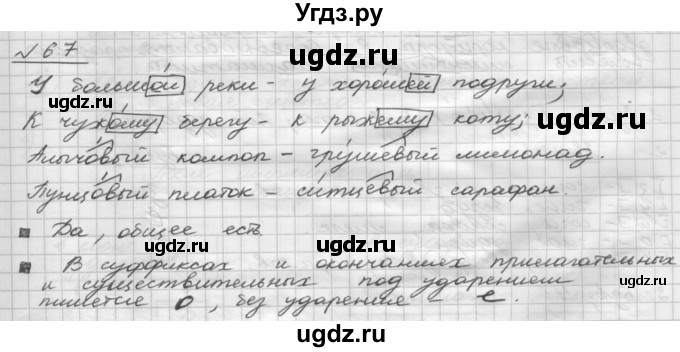 Угдз.ру
№67
У большой реки - у хорошей подруги;
К чужому берегу - к рыжему коту;
Алычовый компот - грушевый лимонад.
Пунцовый платок - ситцевый сарафан.
Да, общее есть
В суффиксах и окончаниях прилагательных
и существительных под ударением
пишется о, без ударение - е.
ugdz.ru
ugdz.ru
ugdz.ru
ugdz.ru
ugdz.ru
ugdz.ru
ugdz.ru
ugdz.ru
ugdz.ru
ugdz.ru